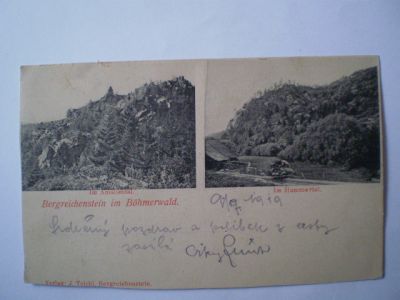 Im Amaliental. Im Hammertal.
Bergreichenstein im Böhmerwald.
1919
Srdečný pozdrav a polibek z cesty
zasílá
Verlag: J. Teichl, Bergreichenstein.